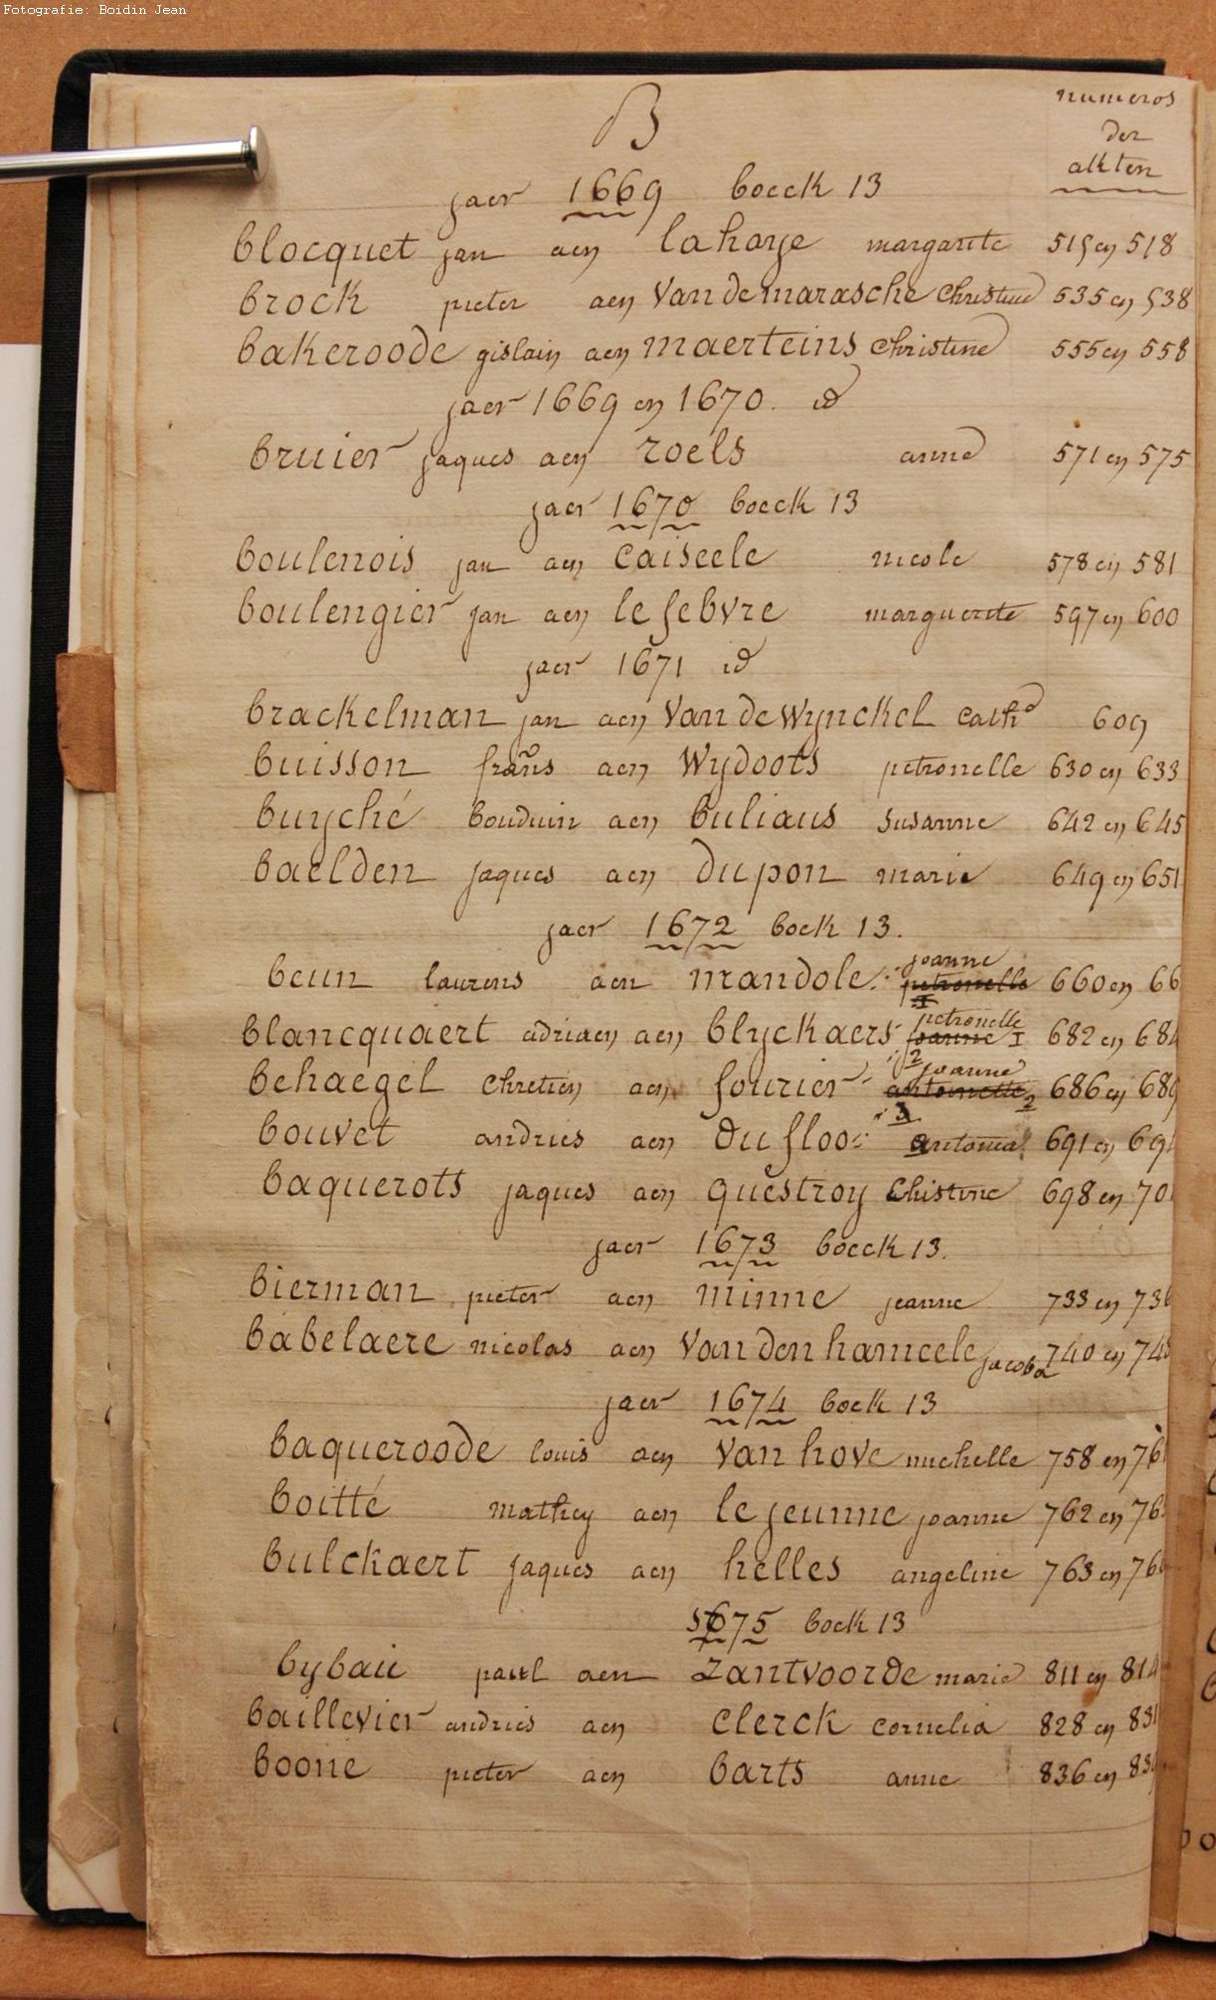 Fotografie: Boidin Jean
B
numeros
der
akten
jaer 1669 boeck 13
blocquet jan aen lahaye margarite 515 en 518
brock pieter aen Van de marasche Christine 535 en 538
bakeroode gislain aen maerteins Christine 555 en 558
jaer 1669 en 1670. id
bruier jaques aen roels anne 571 en 575
jaer 1670 boeck 13
boulenois jan aen caiseele nicole 578 en 581
boulengier jan aen le febvre marguerite 597 en 600
jaer 1671 id
brackelman jan aen Van de Wynckel cath 609
buisson frans aen Wydoots petronelle 630 en 633
buyché bouduin aen buliaus susanne 642 en 645
baelden jaques aen dupon marie 649 en 651
jaer 1672 boek 13.
joanne
beun laurens aen mandole petronelle 660 en 66
petronelle
blancquaert adriaen aen blyckaers joanne 1 682 en 684
2 joanne
behaegel chretien aen fourier antoinette 2 686 en 689
3
bouvet andries aen du floo antonia 691 en 69
baquerots jaques aen questroy Christine 698 en 70
jaer 1673 boeck 13.
bierman pieter aen minne jeanne 733 en 736
babelaere nicolas aen Van den hameele jacoba 740 en 74
jaer 1674 boek 13
baqueroode louis aen Van hove michelle 758 en 76
boitté mathey aen le jeunne joanne 762 en 76
bulckaert jaques aen helles angeline 763 en 76
1675 boek 13
bybau paul aen Zantvoorde marie 811 en 814
baillevier andries aen Clerck cornelia 828 en 831
boone pieter aen barts anne 836 en 83